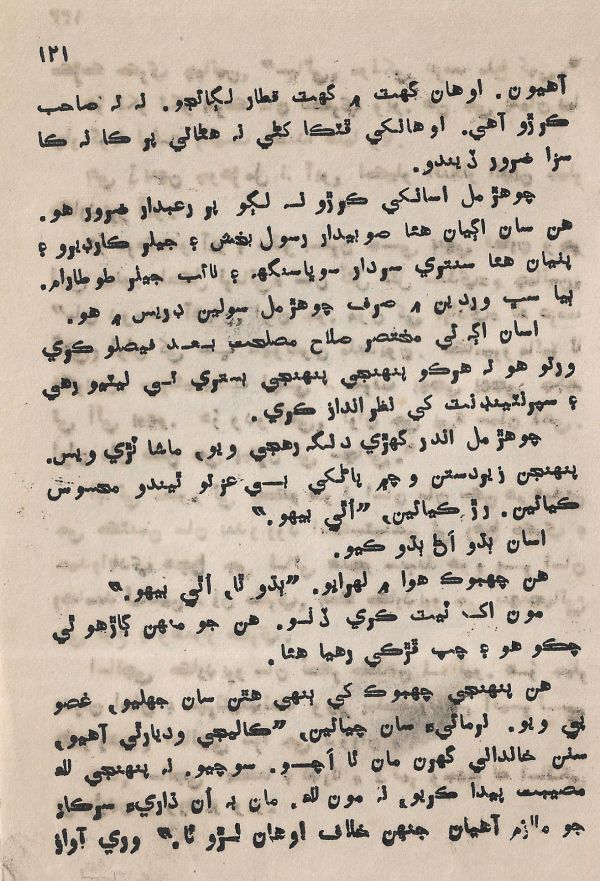 ١٢١
آهيون. اوهان گهٽ ۾ گهٽ قطار لڳائجو. نہ تہ صاحب
ڪوڙو آهي. اوهانکي ڦٽڪا کڻي نہ هڻائي پر ڪا نہ ڪا
سزا ضرور ڏيندو.
چوهڙمل اسانکي ڪوڙو نہ لڳو پر رعبدار ضرور هو.
هن سان اڳيان هئا صوبيدار رسول بخش ۽ جيلر ڪارڊيرو ۽
پٺيان هئا سنتري سردار سوڀاسنگهہ ۽ نائب جيلر طوطارام.
ٻيا سڀ ورديون ۾ صرف چوهڙمل سولين ڊريس ۾ هو.
اسان اڳ ئي مختصر صلاح مصلحت بعد فيصلو ڪري
ورتو هو تہ هرڪو پنهنجي پنهنجي بستري تي ليٽيو رهي
۽ سپرنٽينڊنٽ کي نظرانداز ڪري.
چوهڙمل اندر گهڙي دنگ رهجي ويو، ماٺا ٽڙي ويس.
پنهنجن زيردستن وچ۾ پاڻکي بي عزتو ٿيندو محسوس
ڪيائين. رڙ ڪيائين، ”اٿي بيهو.“
اسان ٻڌو اڻ ٻڌو ڪيو.
هن چهبوڪ هوا ۾ لهرايو. ”ٻڌو ٿا، اٿي بيهو.“
مون اک ٽيٽ ڪري ڏٺو. هن جو منهن ڳاڙهو ٿي
چڪو هو ۽ چپ ڦڙڪي رهيا هئا.
هن پنهنجي چهبوڪ کي ٻنهي هٿن سان جهليو، غصو
پي ويو. نرمائيءَ سان چيائين، ”ڪاليجي وديارٿي آهيو،
سٺن خانداني گهرن مان ٿا اچو. سوچيو. نہ پنهنجي لاءِ
مصيبت پيدا ڪريو، نہ مون لاءِ. مان بہ ان ڌاريءَ سرڪار
جو ملازم آهيان جنهن خلاف اوهان لڙو ٿا.“ وري آواز